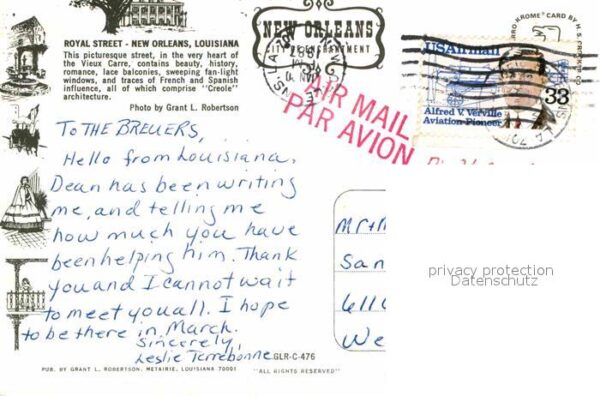 ROYAL STREET - NEW ORLEANS, LOUISIANA
This picturesque street, in the very heart of
the Vieux Carre, contains beauty, history,
romance, lace balconies, sweeping fan-light
windows, and traces of French and Spanish
influence, all of which comprise "Creole"
architecture.
Photo by Grant L. Robertson
NEW ORLEANS
CITY OF ENCHANTMENT
CARD BY H. S. CROCKER CO.
USAirmail
33
Alfred V. Verville
Aviation Pioneer
AIR MAIL
PAR AVION
To THE BREUERS,
Hello from Louisiana,
Dean has been writing
me, and telling me
how much you have
been helping him. Thank
you and I cannot wait
to meet you all. I hope
to be there in March.
Sincerely,
Leslie Terrebonne
GLR-C-476
PUB. BY GRANT L. ROBERTSON, METAIRIE, LOUISIANA 70001
"ALL RIGHTS RESERVED"
San
We
privacy protection
Datenschutz